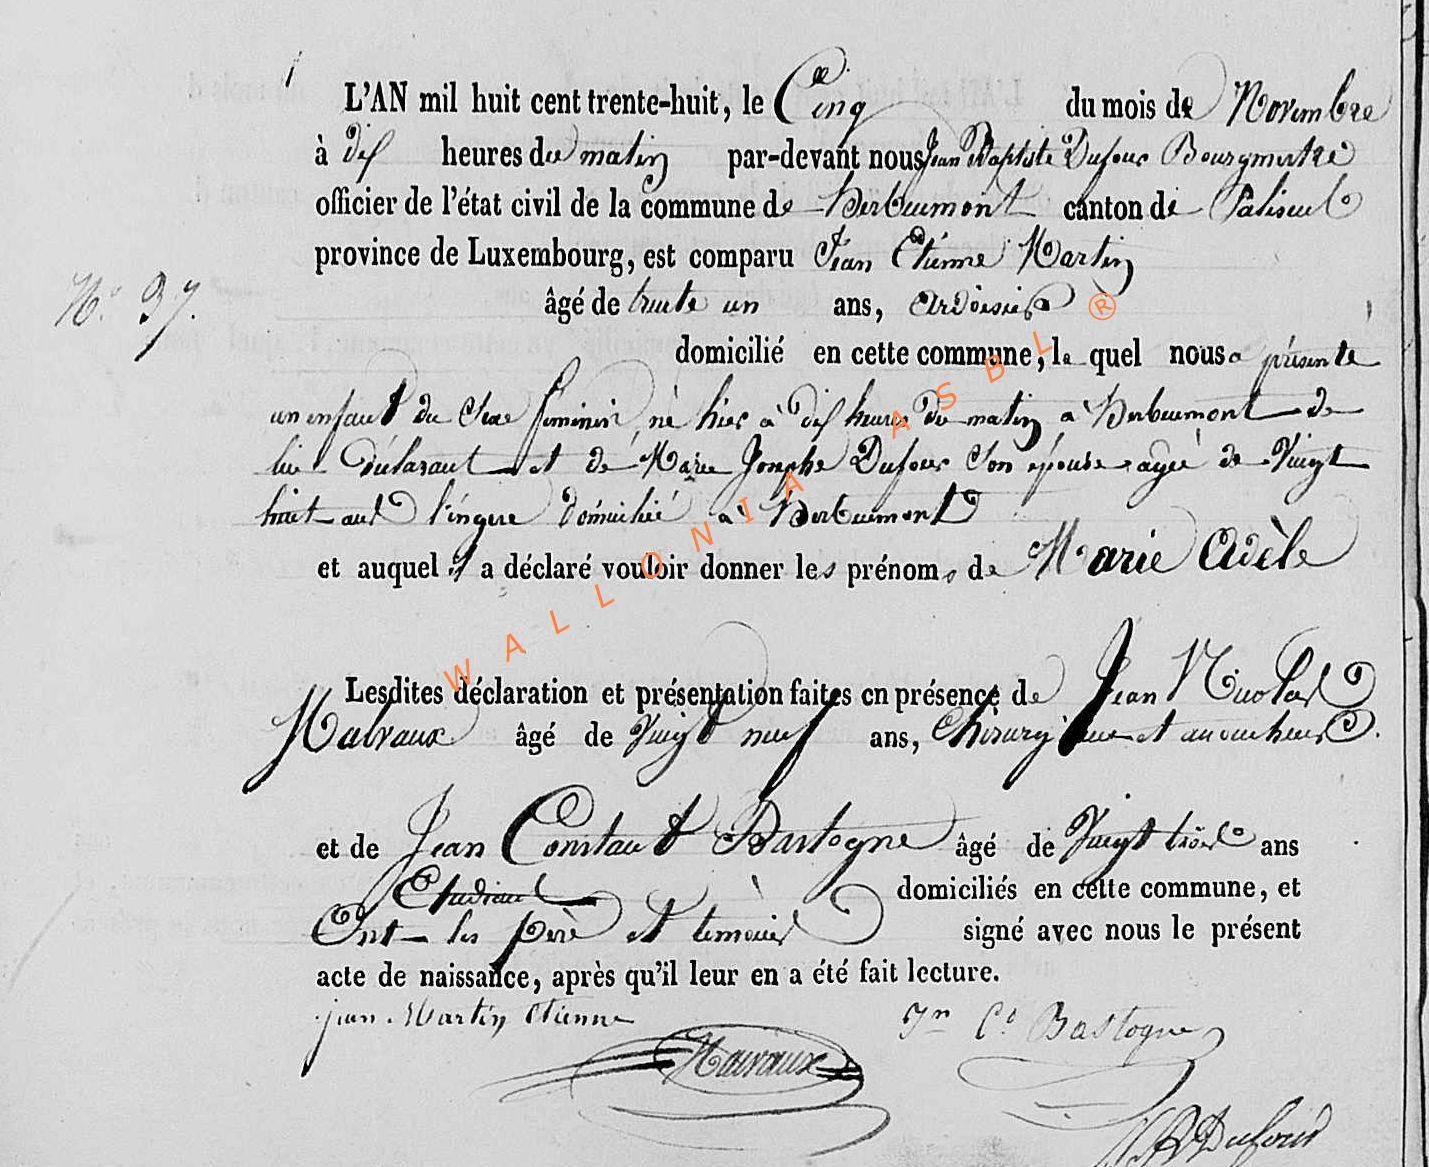 L'AN mil huit cent trente-huit, le Cinq du mois de Novembre
à dix heures du matin par-devant nous Jean Baptiste Dufour Bourgmestre
officier de l'état civil de la commune de Herbeumont canton de Paliseul
province de Luxembourg, est comparu Jean Etienne Martin
N.º 37.
âgé de trente un ans, ardoisier
domicilié en cette commune, le quel nous a présenté
un enfant du sexe féminin né hier à dix heures du matin à Herbeumont de
lui déclarant et de Marie Josephe Dufour son épouse agée de Vingt
huit ans l'ingere domicilié à Herbeumont
et auquel il a déclaré vouloir donner les prénoms de Marie Adèle
Lesdites déclaration et présentation faites en présence de Jean Nicolas
Malvaux âgé de Vingt neuf ans, Chirurgien et accoucheur.
et de Jean Constant Bastogne âgé de Vingt trois ans
Etudiant domiciliés en cette commune, et
Ont les père et temoins signé avec nous le présent
acte de naissance, après qu'il leur en a été fait lecture.
jean Martin Etienne Jn Ct Bastogne
Malvaux
Dufour
WALLONIA ASBL ®